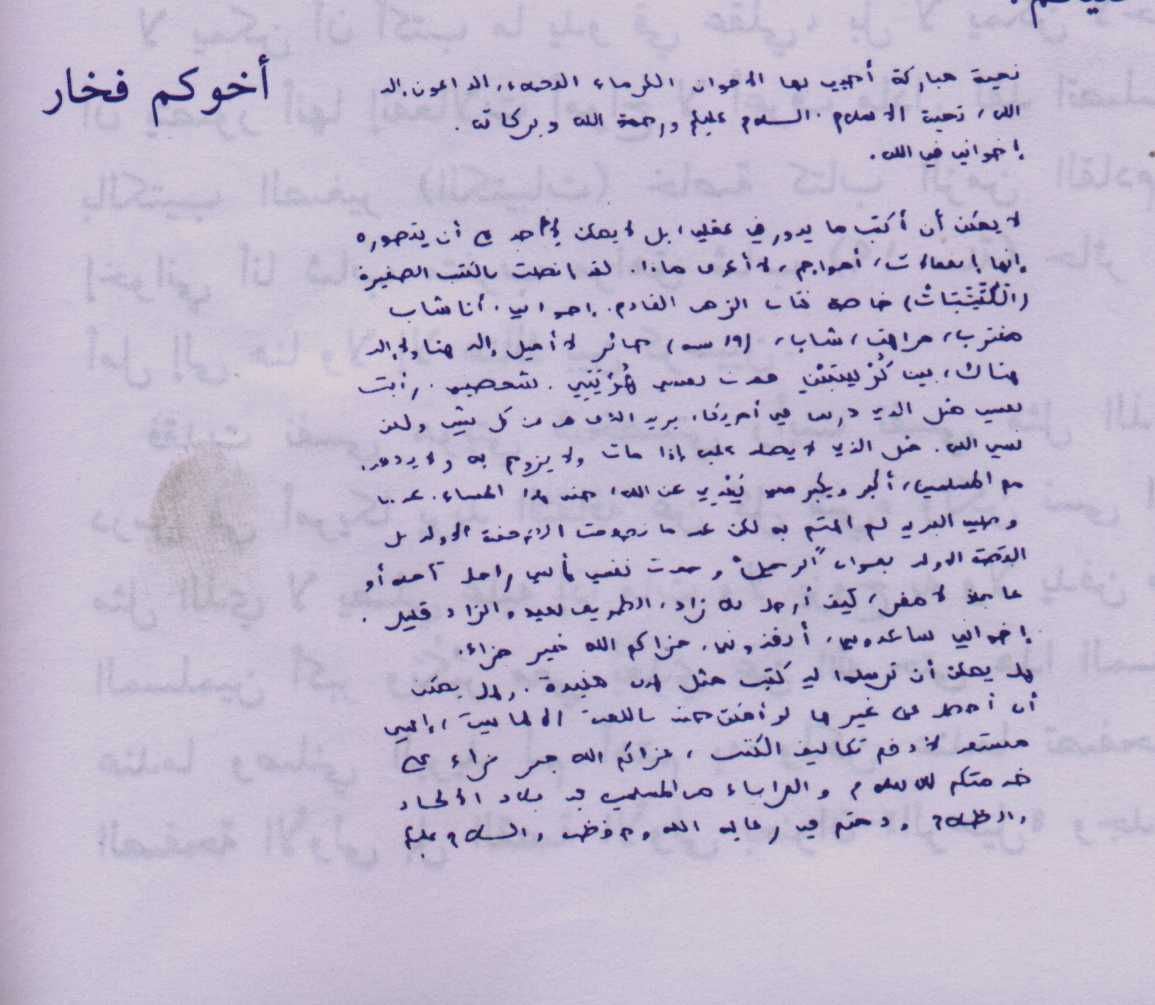 أخوكم فخار
تحية مباركة أجيب بها الاخوان الكرماء الداعون إلى
الله، تحية الاسلام. السلام عليكم ورحمة الله وبركاته.
إخواني في الله.
لا يمكن أن أكتب ما يدور في عقلي، بل لا يمكن لأحد أن يتصوره
إنها إنفعالات، أمواج، لا أعرف ماذا. لقد اتصلت بالكتب الصغيرة
(الْكُتَيِّبَاتْ) خاصة كتاب الزمن القادم. إخواني. أنا شاب
مغترب، مراهق، شاب، (١٩ سنة) حائر لا أميل إلى هنا ولا إلى
هناك، بين
نفسي مثل الذي درس في أمريكا. يريد من كل شيء ولكن
نسي الله. مثل الذي لا يصلى عليه إذا مات ولا به ولا يدفن
مع المسلمين، أكبر ويكبر معي بُعْدِي عن الله، حتى هذا المساء. عندما
وصلني البريد لم أهتم به لكن عندما تصفحت الصفحة الاولى بل
القصة الاولى بعنوان "الرحيل" وجدت نفسي بأنني راحل آجلا أو
عاجلا لا مفر، كيف أرحل بلا زاد، الطريق بعيد والزاد قليل.
إخواني ساعدوني، أنقذوني، جزاكم الله خير جزاء.
هل يمكن أن ترسلوا لي كتب مثل هذه مفيدة. وهل يمكن
أن أحصل على غيرها لو أمكن حتى باللغة الالمانية، إنني
مستعد لادفع تكاليف الكتب، جزاكم الله خير جزاء على
خدمتكم للاسلام والغرباء من المسلمين في بلاد الالحاد
والظلام ودمتم في رعاية الله وحفظه والسلام عليكم